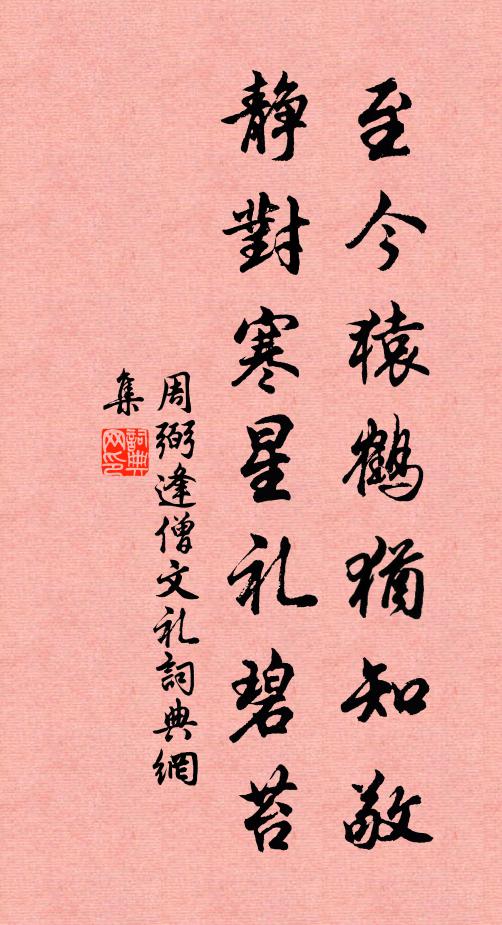 至今猿鶴猶知敬
靜對寒星礼碧苔
周弼逢僧文礼詞典網
集
詞典网印